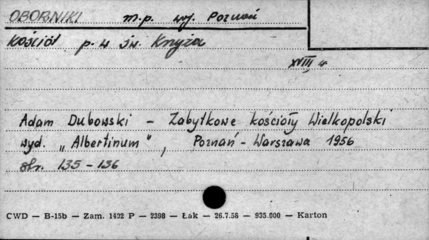 OBORNIKI m.p. woj. Poznań
Kościół p.w. św. Krzyża
XVIII w.
Adam Dubowski – Zabytkowe kościoły Wielkopolski
wyd. „Albertinum”, Poznań - Warszawa 1956
str. 135 – 136
CWD — B-15b — Zam. 1432 P — 2398 — Łak — 26.7.56 — 935.000 — Karton